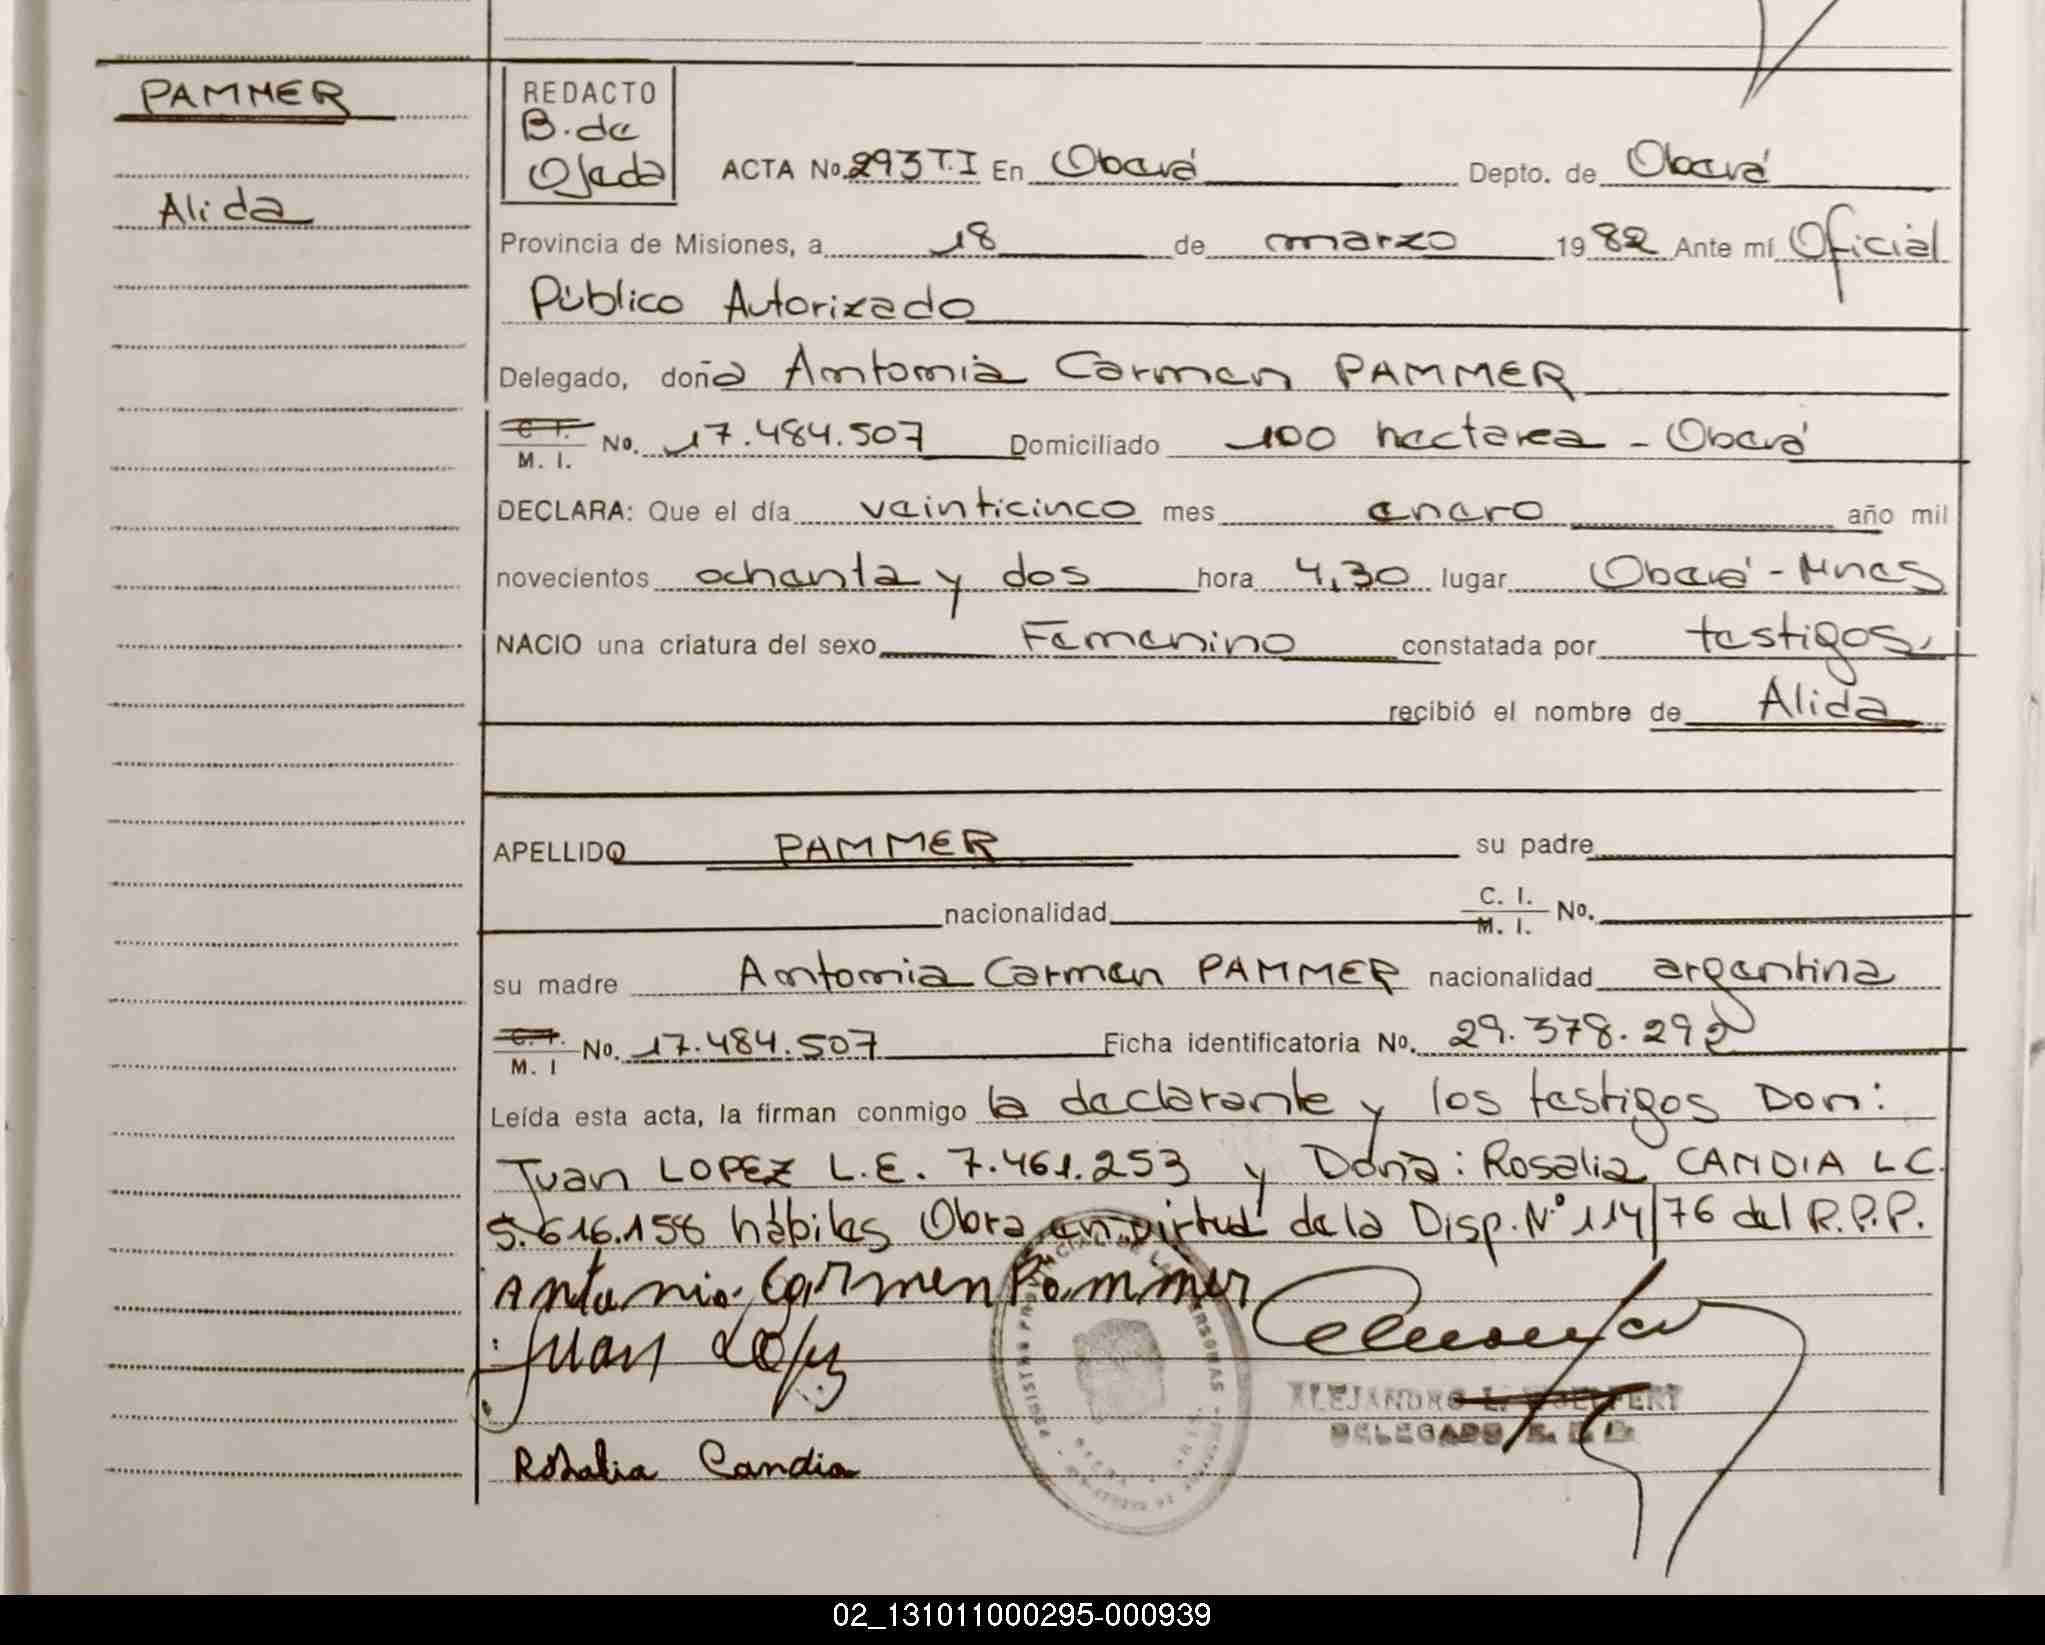 PAMMER
Alida
REDACTO
B. de
Ojeda
ACTA No. 293 T.I En Oberá Depto. de Oberá
Provincia de Misiones, a 18 de marzo 1982 Ante mí Oficial
Público Autorizado
Delegado, doña Antonia Carmen PAMMER
C. I.
M. I. No. 17.484.507 Domiciliado 100 hectarea - Oberá
DECLARA: Que el día veinticinco mes enero año mil
novecientos ochenta y dos hora 4,30 lugar Oberá - Mnes
NACIO una criatura del sexo Femenino constatada por testigos,
recibió el nombre de Alida
APELLIDO PAMMER su padre
nacionalidad C. I.
M. I. No.
su madre Antonia Carmen PAMMER nacionalidad argentina
C. I.
M. I No. 17.484.507 Ficha identificatoria No. 29.378.292
Leída esta acta, la firman conmigo la declarante y los testigos Don:
Juan LOPEZ L.E. 7.461.253 y Doña: Rosalia CANDIA LC.
5.616.158 hábiles Obra en virtud de la Disp. Nº 114/76 del R.P.P.
Antonia Carmen Pammer
Juan Lopez
ALEJANDRO L.
DELEGADO
Rosalia Candia
REGISTRO PROVINCIAL DE LAS PERSONAS
02_131011000295-000939